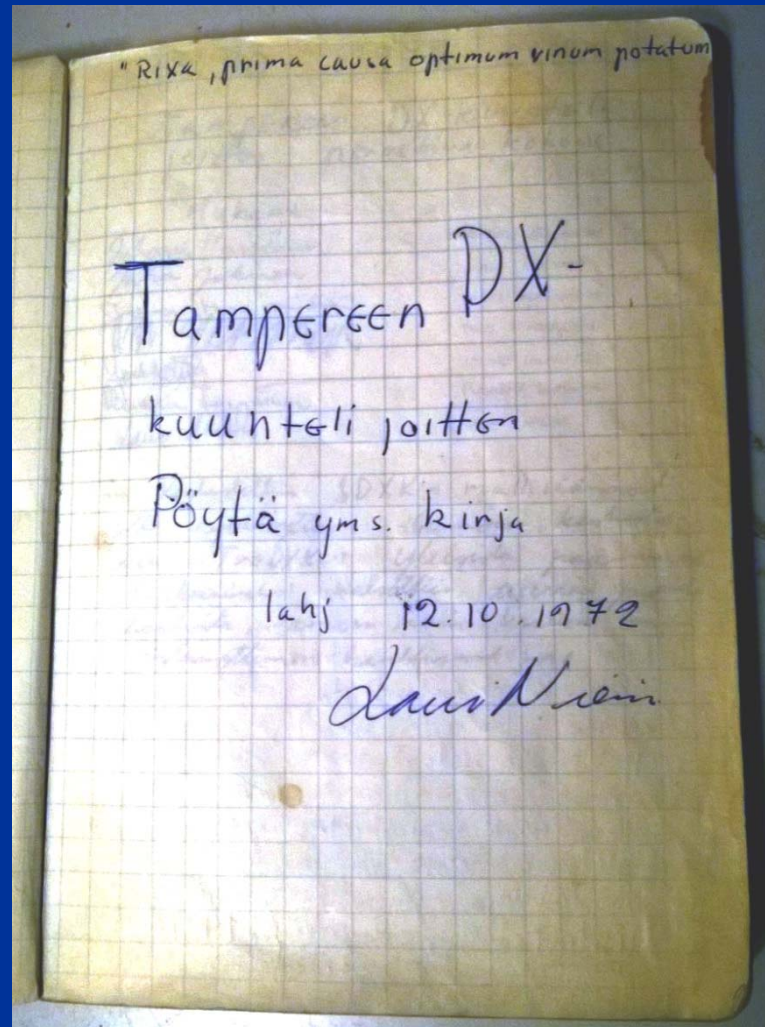 "Rixa, prima causa optimum vinum potatum
Tampereen DX-
kuuntelijoitten
Pöytä yms. kirja
lahj 12.10.1972
Lauri Niemi